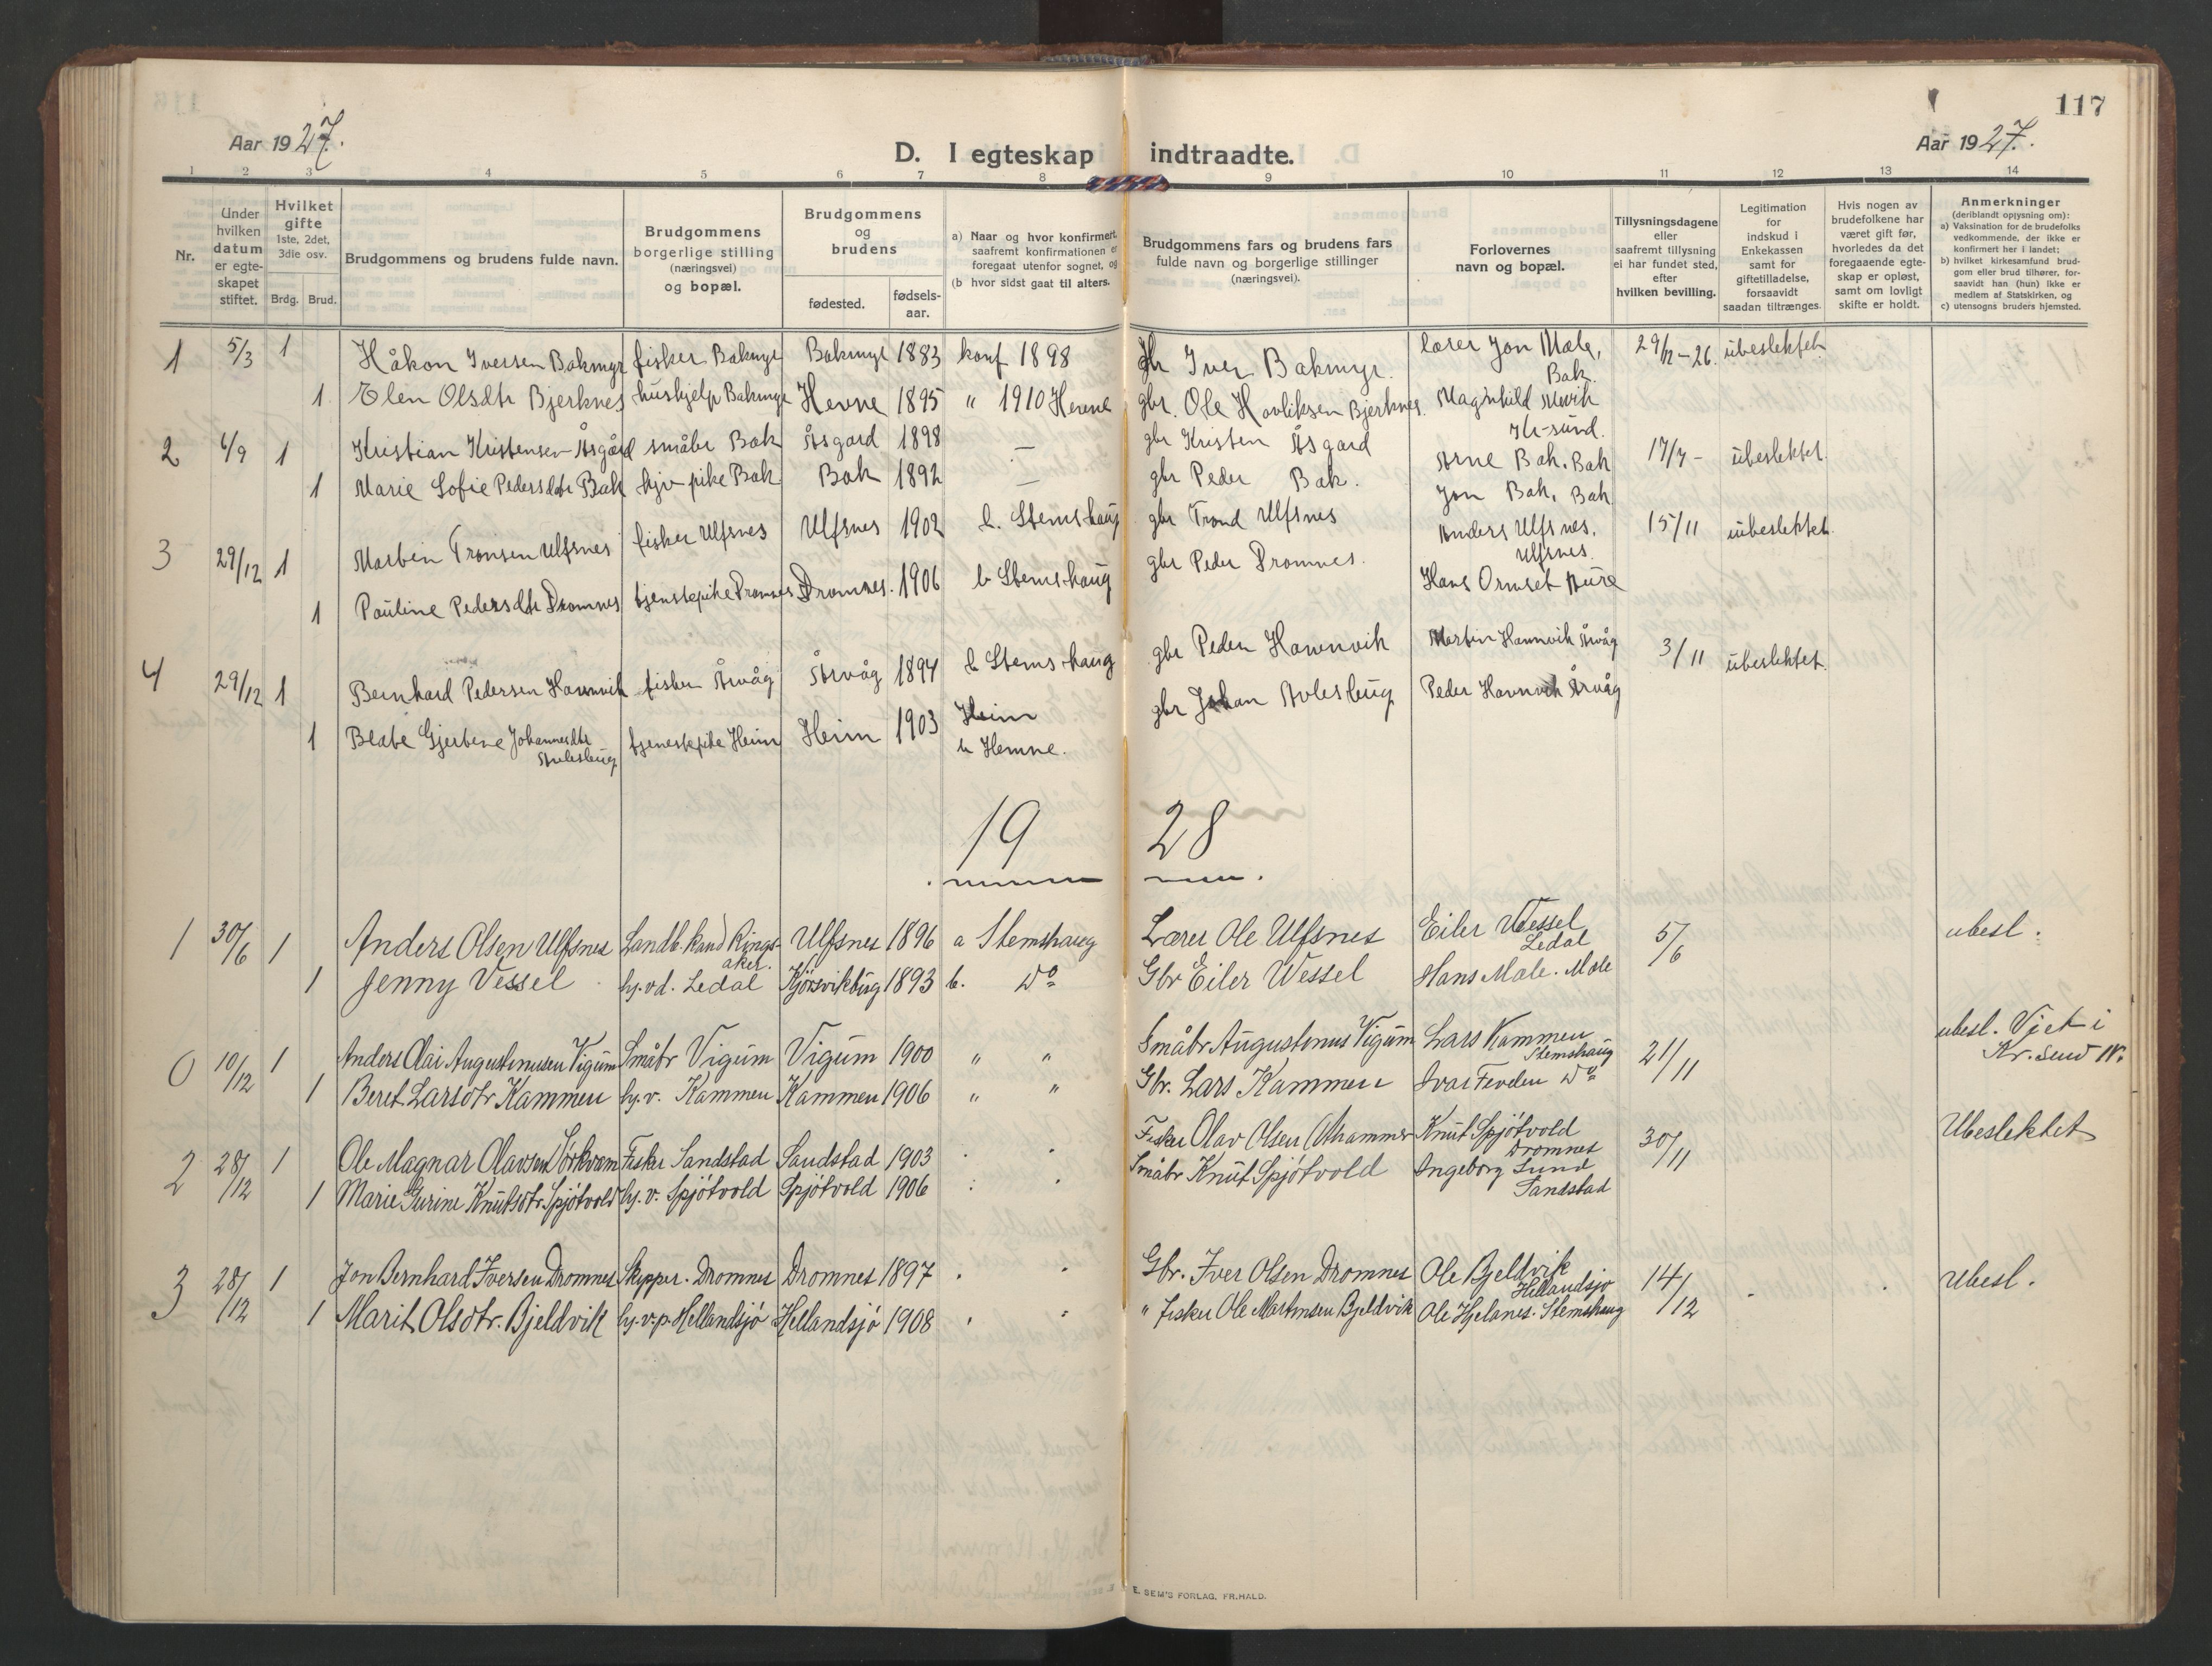 117
Aar 1927.
D. I egteskap indtraadte.
Aar 1927.
1 2 3 4 5 6 7 8 9 10 11 12 13 14
Nr.
Under hvilken datum er egte-skapet stiftet.
Hvilket gifte 1ste, 2det, 3die osv.
Brdg. Brud.
Brudgommens og brudens fulde navn.
Brudgommens borgerlige stilling (næringsvei) og bopæl.
Brudgommens og brudens
fødested. fødsels-aar.
a) Naar og hvor konfirmert, saafremt konfirmationen er foregaat utenfor sognet, og
(b hvor sidst gaat til alters.
Brudgommens fars og brudens fars fulde navn og borgerlige stillinger (næringsvei).
Forlovernes navn og bopæl.
Tillysningsdagene eller saafremt tillysning ei har fundet sted, efter hvilken bevilling.
Legitimation for indskud i Enkekassen samt for giftetilladelse, forsaavidt saadan tiltrænges.
Hvis nogen av brudefolkene har været gift før, hvorledes da det foregaaende egte-skap er opløst, samt om lovligt skifte er holdt.
Anmerkninger (deriblandt opjysning om):
a) Vaksination for de brudefolks vedkommende, der ikke er konfirmert her i landet;
b) hvilket kirkesamfund brud-gom eller brud tilhører, for-saavidt han (hun) ikke er medlem af Statskirken, og
c) utensogns bruders hjemsted.
1 5/3 1 Håkon Iversen Bakmyr fisker Bakmyr Bakmyr 1883 konf 1898 gbr Iver Bakmyr. lærer Jon Mæle, Bak. 29/12-26. ubeslektet
1 Elen Olsdtr Bjerknes hushjelp Bakmyr Hevne 1895 " 1910 Hevne gbr. Ole Havliksen Bjerknes. Magnhild Kr-sund.
2 6/9 1 Kristian Kristensen Åsgård småbr Bak Åsgard 1898 — gbr Kristen Åsgard Arne Bak. Bak 17/7 - ubeslektet.
1 Marie Sofie Pedersdtr Bak hjv pike Bak Bak 1892 — gbr Peder Bak. Jon Bak, Bak
3 29/12 1 Marten Tronsen Ulfsnes fisker Ulfsnes Ulfsnes 1902 b. Stemshaug gbr Trond Ulfsnes Anders Ulfsnes. Ulfsnes. 15/11 ubeslektet.
1 Pauline Pedersdtr Dromnes tjenstepike Dromnes Dromnes. 1906 b Stemshaug gbr Peder Dromnes. Hans Ormset Aure
4 29/12 1 Bernhard Pedersen Havnvik fisker Årvåg Årvåg 1894 b Stemshaug gbr Peder Havnvik Martin Havnvik Årvåg 3/11 ubeslektet.
1 Beate Gjertine Johannesdtr tjenestepike Heim Heim 1903 Heim b Hemne. gbr Johan Peder Havnvik Årvåg
19 28
1 30/6 1 Anders Olsen Ulfsnes Landb. kand Rings-aker. Ulfsnes 1896 a Stemshaug Lærer Ole Ulfsnes Eiler Wessel Ledal 5/6 ubesl.
1 Jenny Vessel hj.vd. Ledal Kjörsvikbug 1893 b. Do Gbr Eiler Wessel Hans Mæle. Mæle
0 10/12 1 Anders Olai Augustinusen Vigum Småbr Vigum Vigum 1900 " " Småbr Augustinus Vigum Lars Kammen Stemshaug 21/11 ubesl. Viet i Kr. sund N.
1 Beret Larsdtr Kammen hj.v. Kammen Kammen 1906 " " Gbr. Lars Kammen Ivar Fevden Do
2 28/12 1 Ole Magnar Olavsen Sørkvam Fisker Sandstad Sandstad 1903 Fisker Olav Olsen Knut Spjötvold Dromnes 30/11 Ubeslektet
1 Marie Gurine Knutsdtr. Spjötvold hj. v. Spjötvold Spjötvold 1906 Småbr Knut Spjötvold Ingeborg Lund Sandstad
3 28/12 1 Jon Bernhard Iversen Dromnes Skipper. Dromnes Dromnes 1897 Gbr. Iver Olsen Dromnes Ole Bjeldvik Hellandsjö 14/12 ubesl.
1 Marit Olsdtr. Bjeldvik hj. v. p. Hellandsjö Hellandsjö 1908 " fisker Ole Martinsen Bjeldvik Ole Hjelanes. Stemshaug
E. SEM'S FORLAG, FR.HALD.